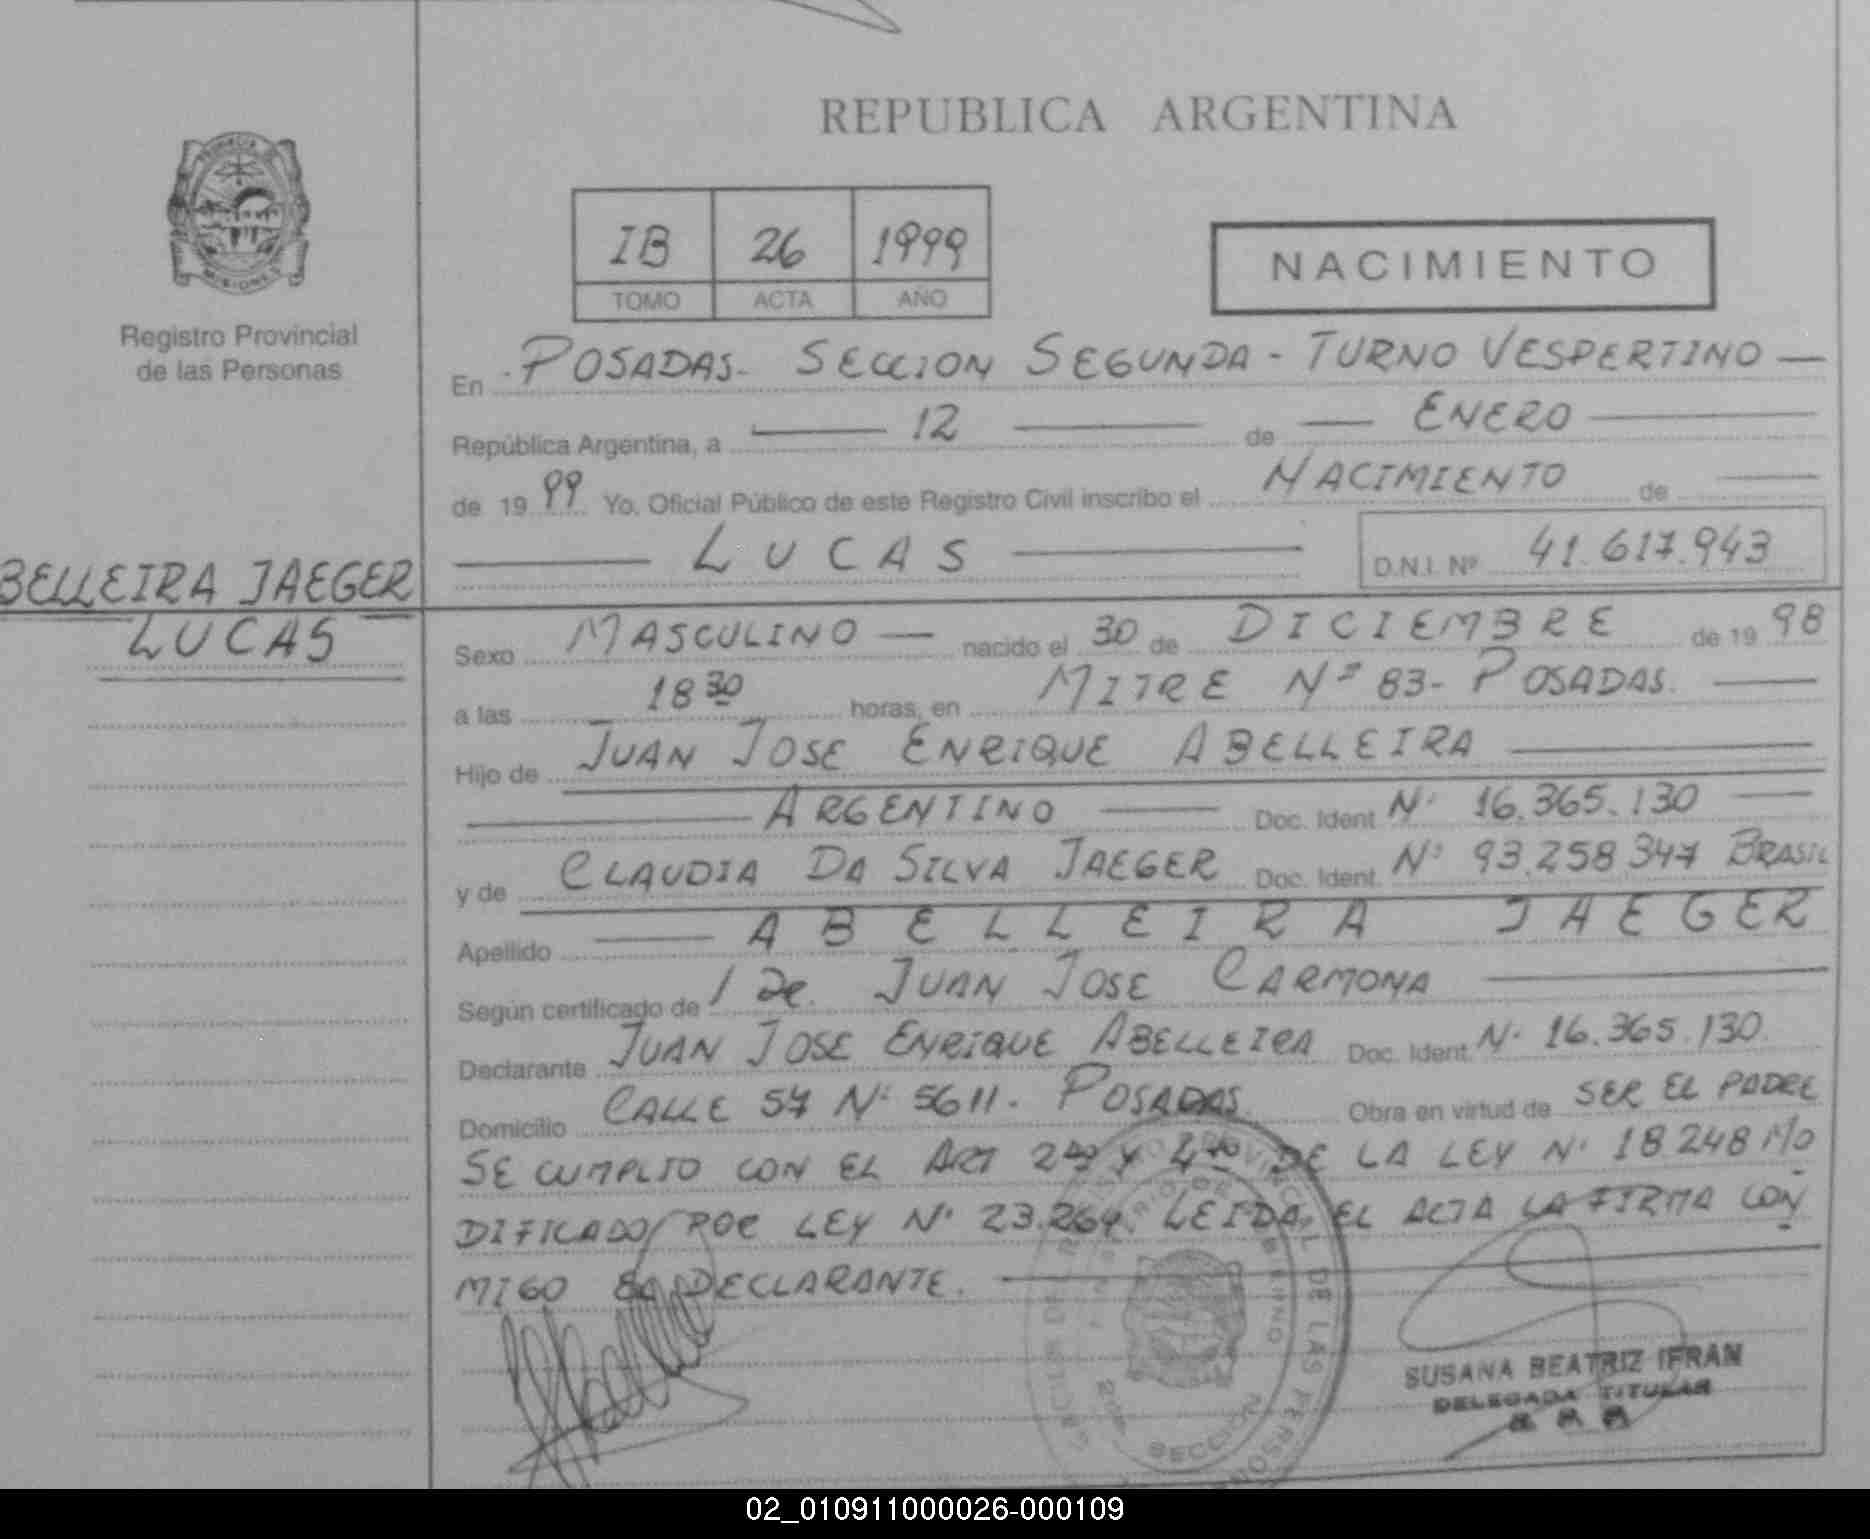 REPUBLICA ARGENTINA
IB 26 1999
TOMO ACTA AÑO
NACIMIENTO
Registro Provincial
de las Personas
En POSADAS - SECCION SEGUNDA - TURNO VESPERTINO
República Argentina, a 12 de ENERO
de 1999 Yo, Oficial Público de este Registro Civil inscribo el NACIMIENTO de
LUCAS D.N.I. Nº 41.617.943
BELLEIRA JAEGER
LUCAS
Sexo MASCULINO nacido el 30 de DICIEMBRE de 1998
a las 18 30 horas, en MITRE Nº 83 - POSADAS.
Hijo de JUAN JOSE ENRIQUE ABELLEIRA
ARGENTINO Doc. Ident. Nº 16.365.130
y de CLAUDIA DA SILVA JAEGER Doc. Ident. Nº 93.258.347 BRASIL
Apellido ABELLEIRA JAEGER
Según certificado de JUAN JOSE CARMONA
Declarante JUAN JOSE ENRIQUE ABELLEIRA Doc. Ident. Nº 16.365.130.
Domicilio CALLE 57 Nº 5611 - POSADAS. Obra en virtud de SER EL PADRE
SE CUMPLIO CON EL ART 2do Y 4to DE LA LEY Nº 18248 MO
DIFICADO POR LEY Nº 23.264. LEIDA EL ACTA LA FIRMA CON
MIGO EL DECLARANTE.
REGISTRO PROVINCIAL DE LAS PERSONAS
SECCION
SUSANA BEATRIZ IFRAN
DELEGADA TITULAR
02_010911000026-000109